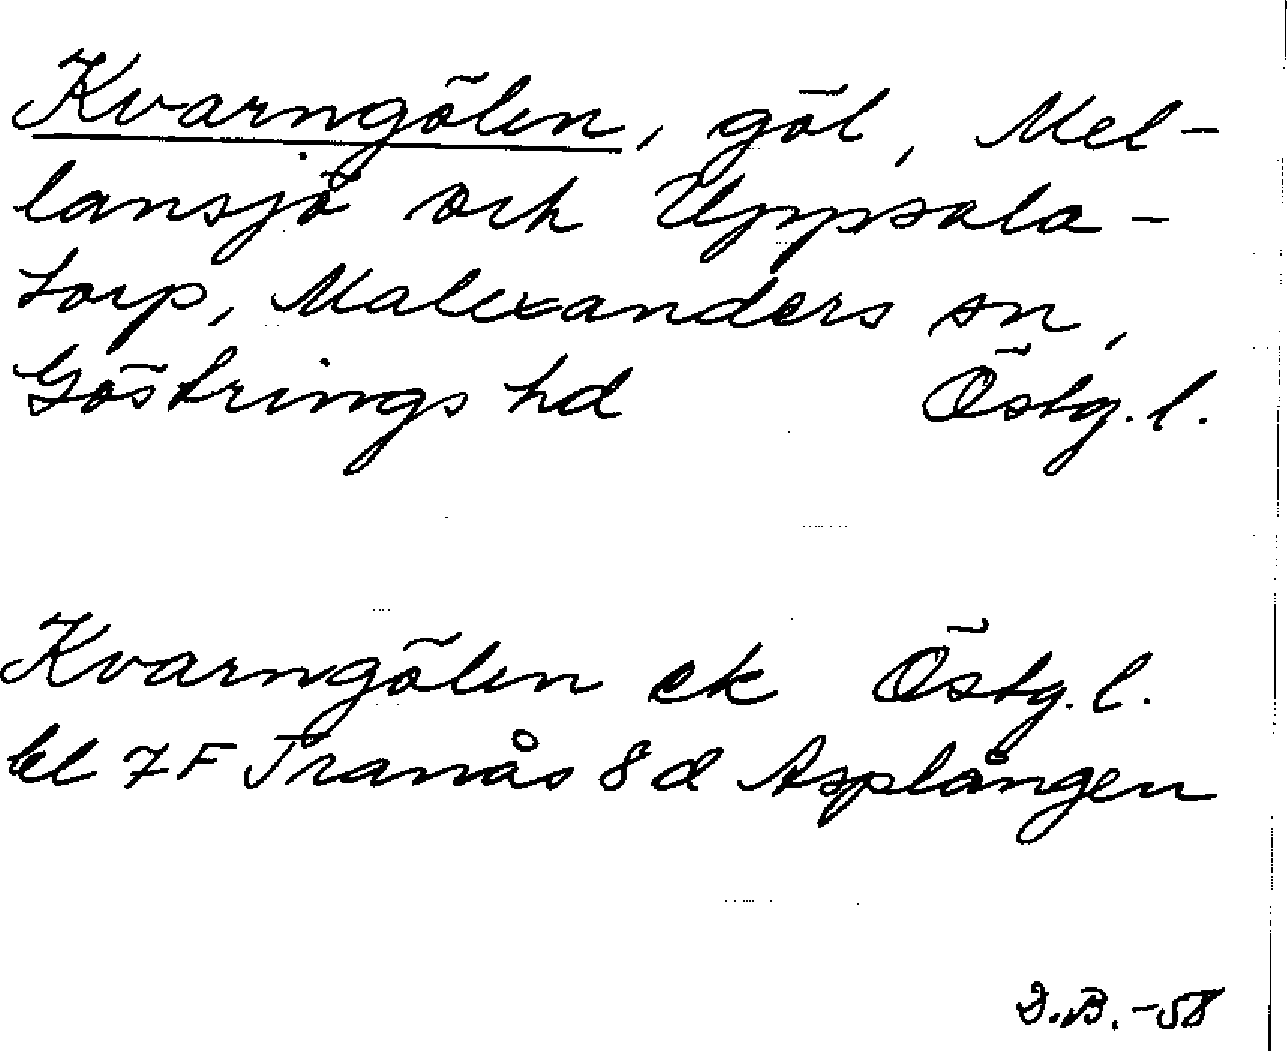 Kvarngölen, göl, Mel-
lansjö och Uppsala-
torp, Malexanders sn,
Göstrings hd Östg. l.
Kvarngölen ek Östg. l.
bl 7F Tranås 8d Asplången
D.B.-58